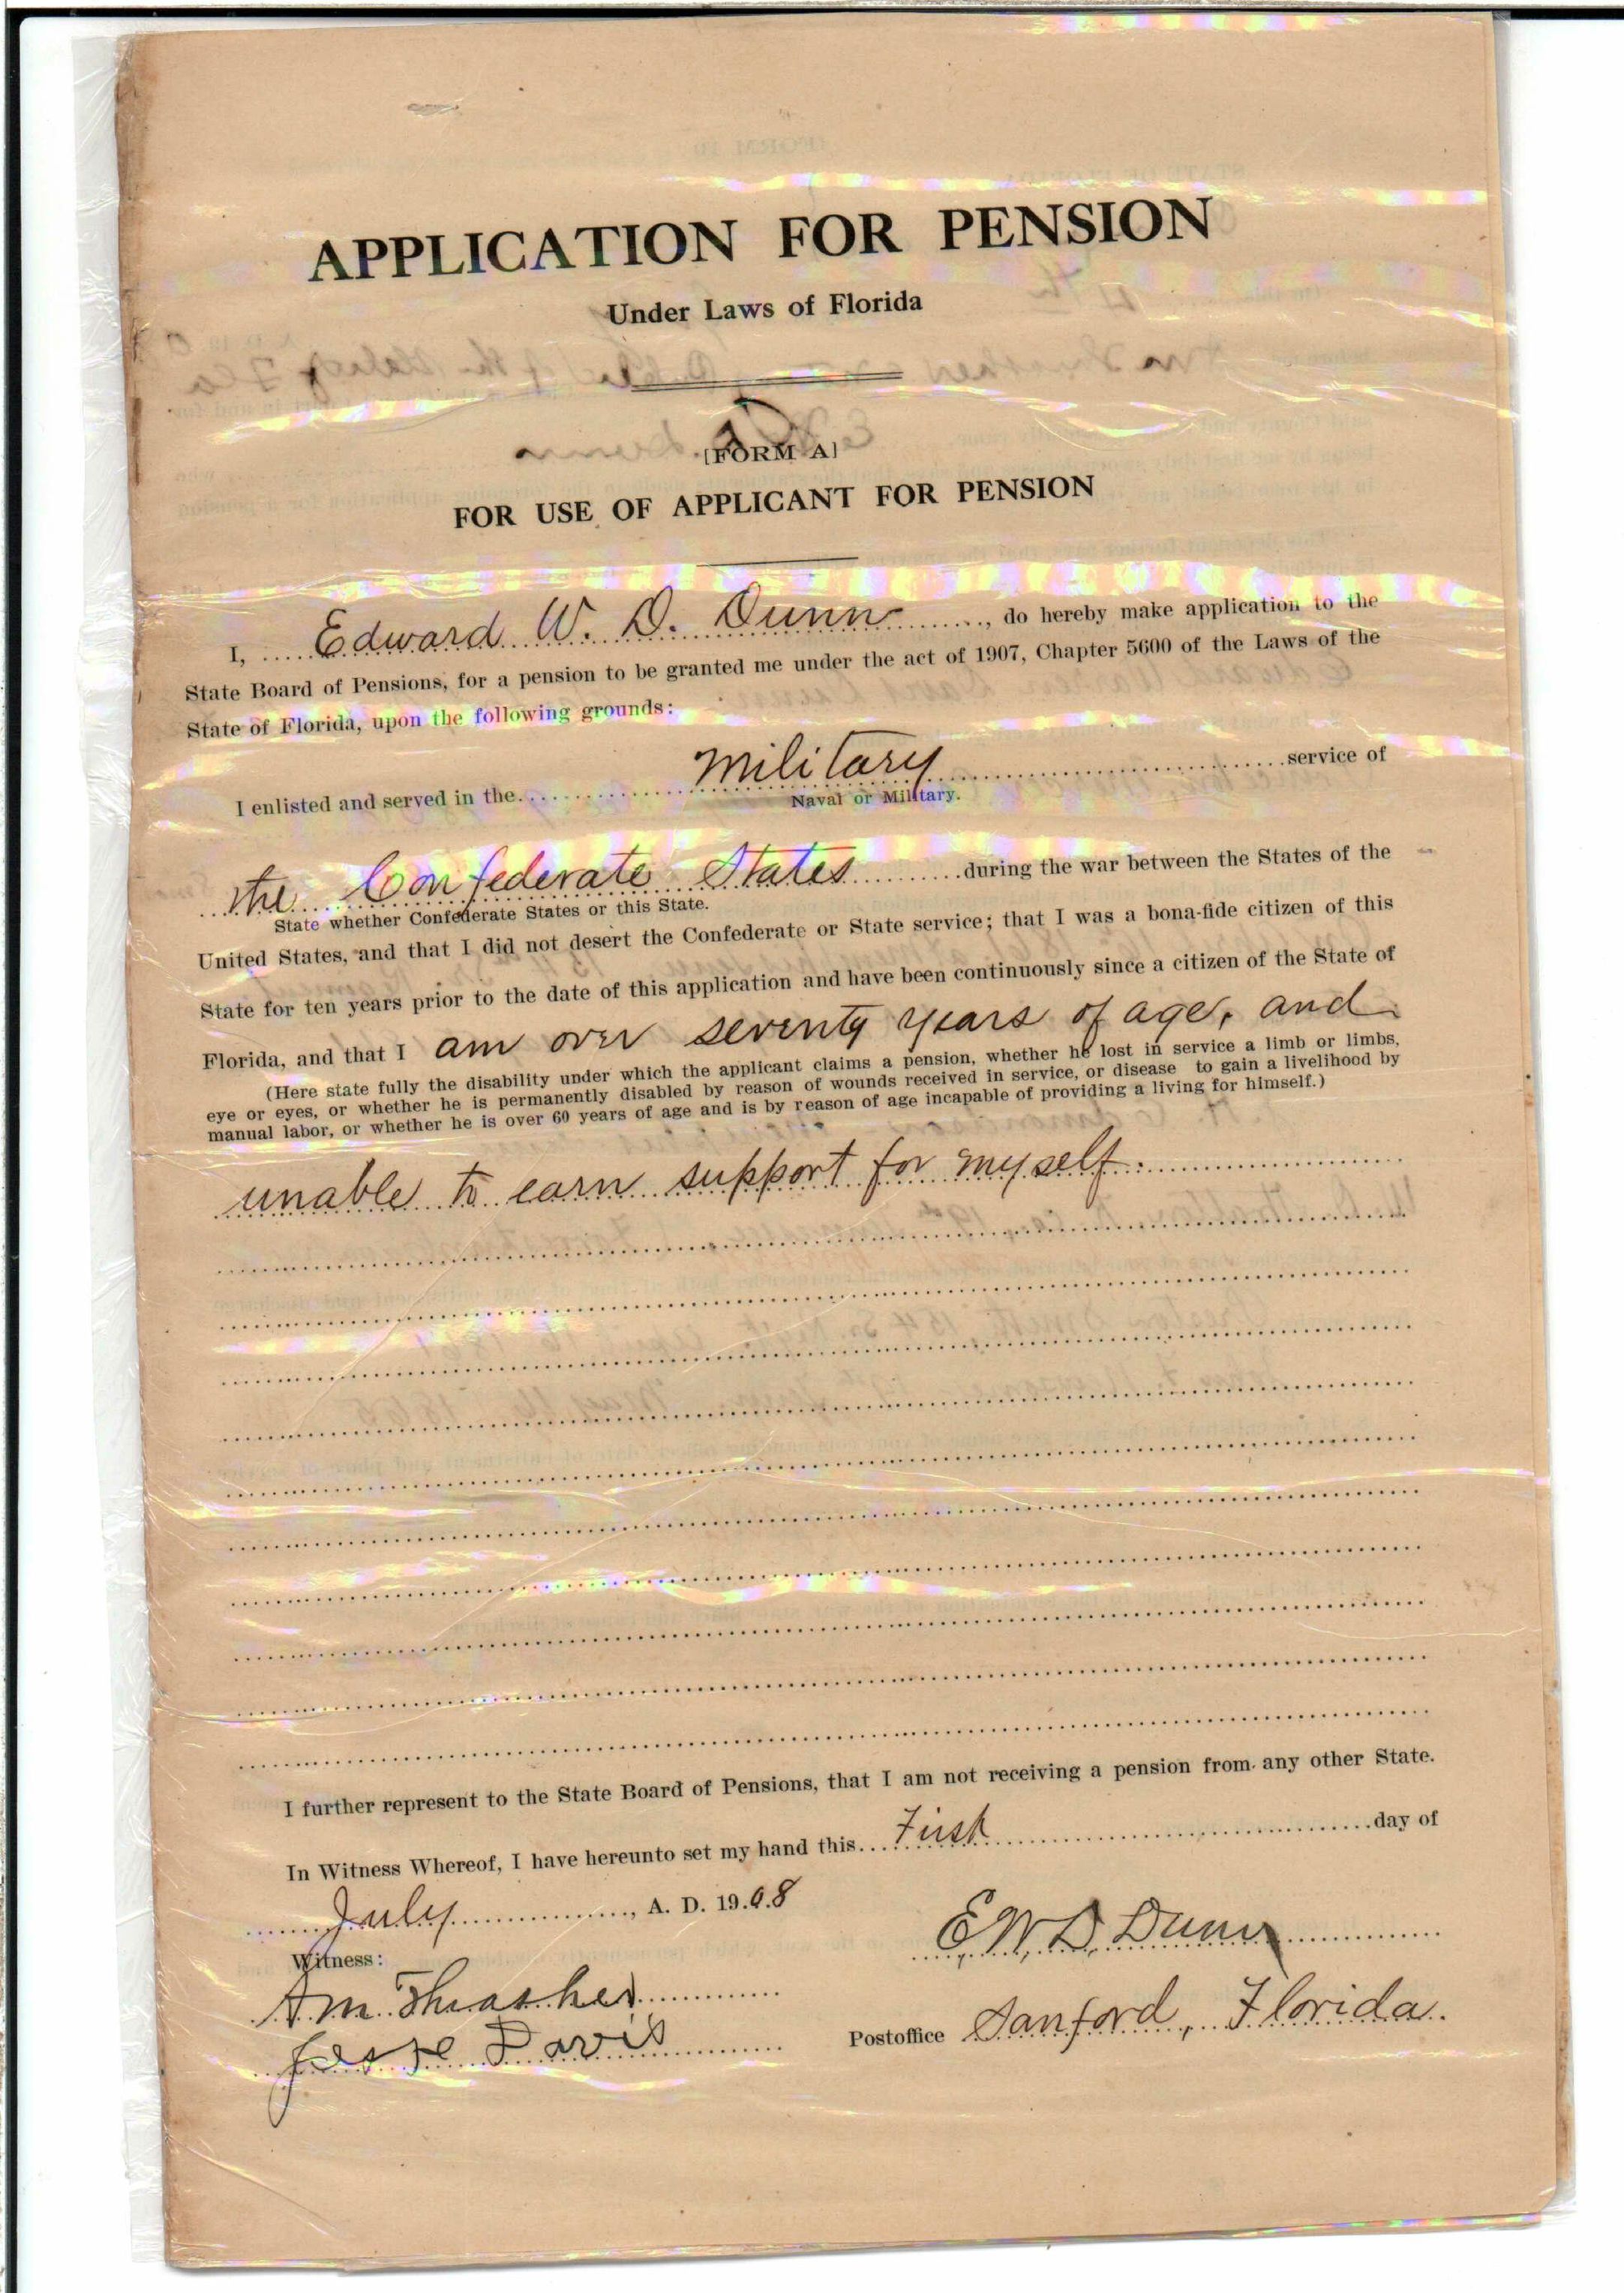 APPLICATION FOR PENSION
Under Laws of Florida
[FORM A]
FOR USE OF APPLICANT FOR PENSION
I, Edward W. D. Dunn, do hereby make application to the
State Board of Pensions, for a pension to be granted me under the act of 1907, Chapter 5600 of the Laws of the
State of Florida, upon the following grounds:
I enlisted and served in the military service of
Naval or Military.
the Confederate States during the war between the States of the
State whether Confederate States or this State.
United States, and that I did not desert the Confederate or State service; that I was a bona-fide citizen of this
State for ten years prior to the date of this application and have been continuously since a citizen of the State of
Florida, and that I am over seventy years of age, and
(Here state fully the disability under which the applicant claims a pension, whether he lost in service a limb or limbs,
eye or eyes, or whether he is permanently disabled by reason of wounds received in service, or disease to gain a livelihood by
manual labor, or whether he is over 60 years of age and is by reason of age incapable of providing a living for himself.)
unable to earn support for myself.
I further represent to the State Board of Pensions, that I am not receiving a pension from any other State.
In Witness Whereof, I have hereunto set my hand this First day of
July, A. D. 1908
E. W. D. Dunn
Witness:
A M Thrasher
Jesse Davis
Postoffice Sanford, Florida.